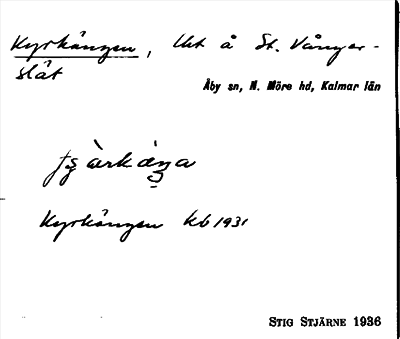 Kyrkängen, Utt å St. Vånger-
slät
Åby sn, N. Möre hd, Kalmar län
Kyrkängen kb 1931
STIG STJÄRNE 1936